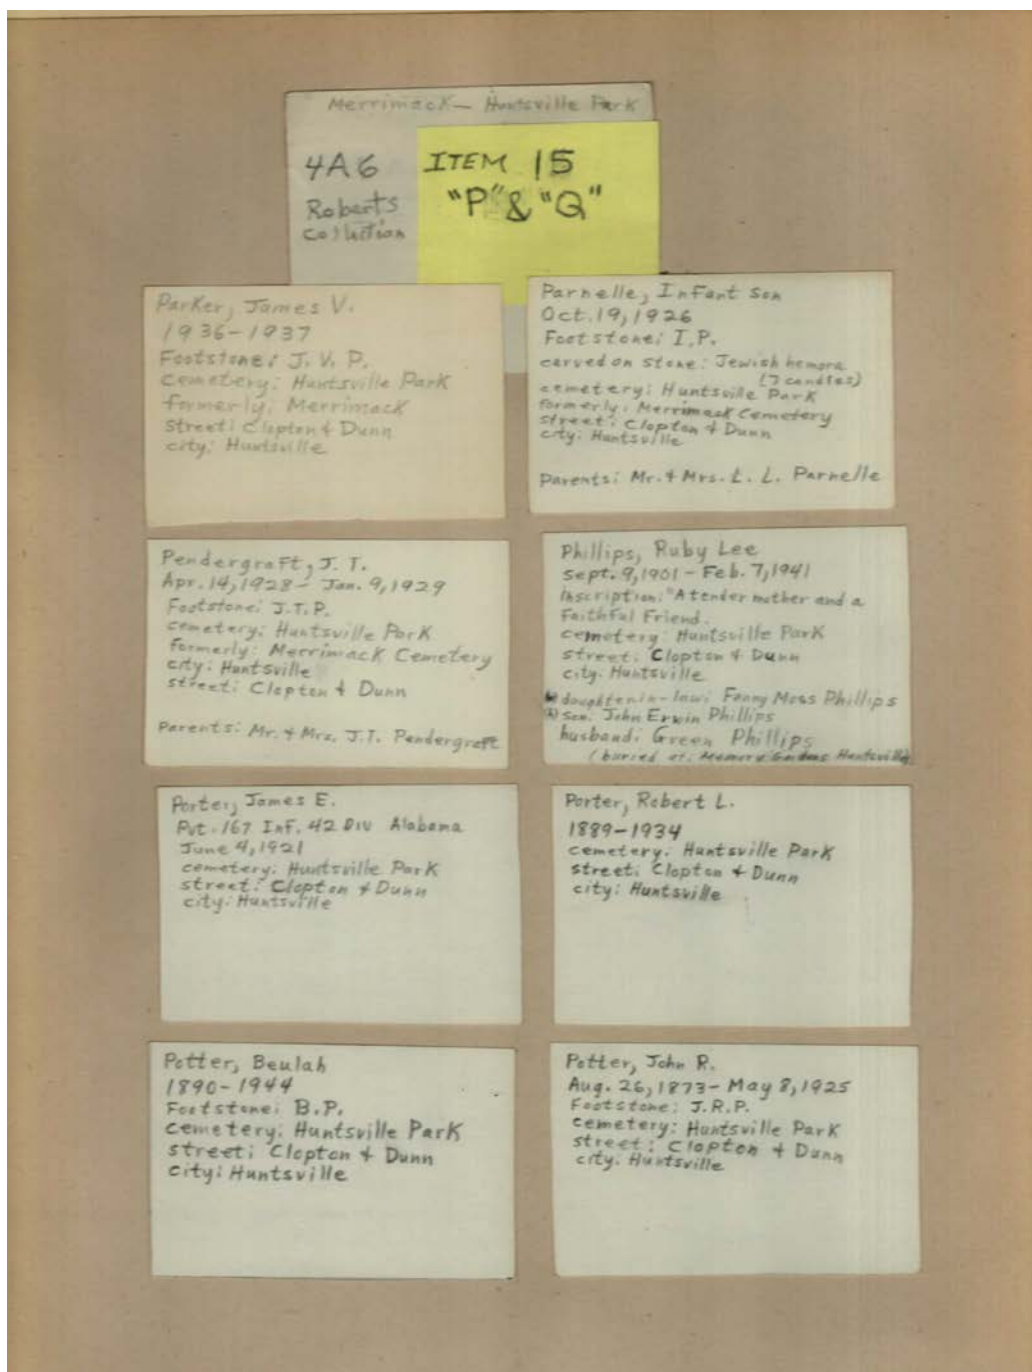 Merrimack - Huntsville Park
4A6
Roberts
Collection
ITEM 15
"P" & "Q"
Parker, James V.
1936-1937
Footstone: J. V. P.
cemetery: Huntsville Park
formerly: Merrimack
street: Clopton & Dunn
city: Huntsville
Parnelle, Infant Son
Oct. 19, 1926
Footstone: I.P.
carved on stone: Jewish hemora
(7 candles)
cemetery: Huntsville Park
formerly: Merrimack Cemetery
street: Clopton & Dunn
city: Huntsville
Parents: Mr. & Mrs. L. L. Parnelle
Pendergraft, J. T.
Apr. 14, 1928 - Jan. 9, 1929
Footstone: J.T.P.
cemetery: Huntsville Park
formerly: Merrimack Cemetery
city: Huntsville
street: Clopton & Dunn
Parents: Mr. & Mrs. J.T. Pendergraft
Phillips, Ruby Lee
Sept. 9, 1901 - Feb. 7, 1941
Inscription: "A tender mother and a
Faithful Friend.
cemetery: Huntsville Park
street: Clopton & Dunn
city: Huntsville
daughter-in-law: Fanny Moss Phillips
son: John Erwin Phillips
husband: Green Phillips
(buried at: Memory Gardens Huntsville)
Porter, James E.
Pvt. 167 Inf. 42 Div Alabama
June 4, 1921
cemetery: Huntsville Park
street: Clopton & Dunn
city: Huntsville
Porter, Robert L.
1889-1934
cemetery: Huntsville Park
street: Clopton & Dunn
city: Huntsville
Potter, Beulah
1890-1944
Footstone: B.P.
cemetery: Huntsville Park
street: Clopton & Dunn
city: Huntsville
Potter, John R.
Aug. 26, 1873 - May 8, 1925
Footstone: J.R.P.
cemetery: Huntsville Park
street: Clopton & Dunn
city: Huntsville